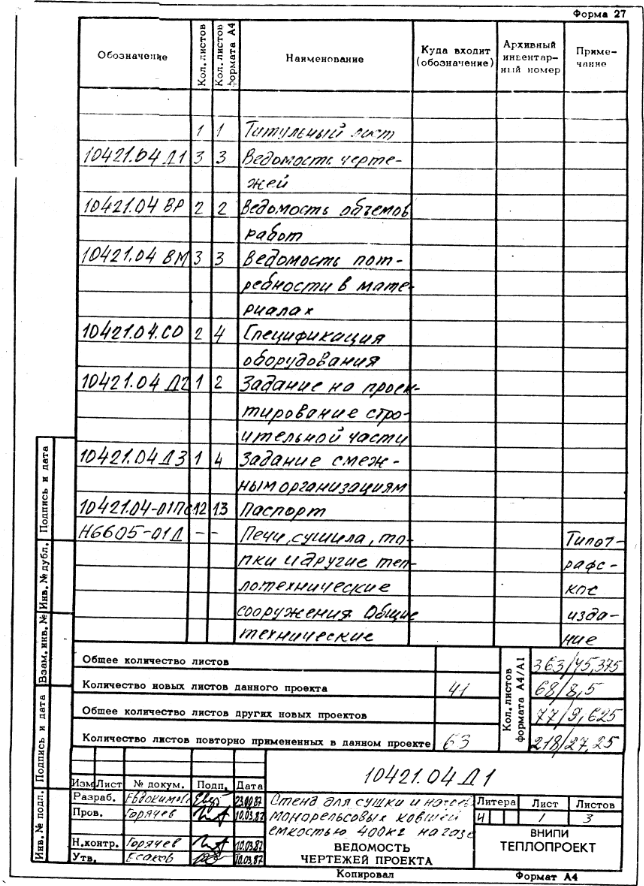 Форма 27
Обозначение Кол. листов Кол. листов формата А4 Наименование Куда входит (обозначение) Архивный инвентарный номер Примечание
1 1 Титульный лист
10421.04 Д1 3 3 Ведомость черте-
жей
10421.04 ВР 2 2 Ведомость объемов
работ
10421.04 ВМ 3 3 Ведомость пот-
ребности в мате-
риалах
10421.04.СО 2 4 Спецификация
оборудования
10421.04 Д2 1 2 Задание на проек-
тирование стро-
ительной части
10421.04 Д3 1 4 Задание смеж-
ным организациям
10421.04-01ПС 12 13 Паспорт
Н6605-01Д -- Печи, сушила, то- Типог-
пки и другие теп- рафс-
лотехнические кое
сооружения Общие изда-
технические ние
Общее количество листов 363/45,375
Количество новых листов данного проекта 41 68/8,5
Общее количество листов других новых проектов 77/9,625
Количество листов повторно примененных в данном проекте 63 218/27,25
Кол. листов формата А4/А1
10421.04 Д1
Изм Лист № докум. Подп. Дата
Разраб. Евдокимова
Пров. Горячев 10.03.87
Н.контр. Горячев 10.03.87
Утв. Есаков 10.03.87
Стенд для сушки и нагрева
монорельсовых ковшей
емкостью 400кг на газе
ВЕДОМОСТЬ
ЧЕРТЕЖЕЙ ПРОЕКТА
Литера Лист Листов
И 1 3
ВНИПИ
ТЕПЛОПРОЕКТ
Копировал Формат А4
Инв. № подл. Подпись и дата Взам. инв. № Инв. № дубл. Подпись и дата